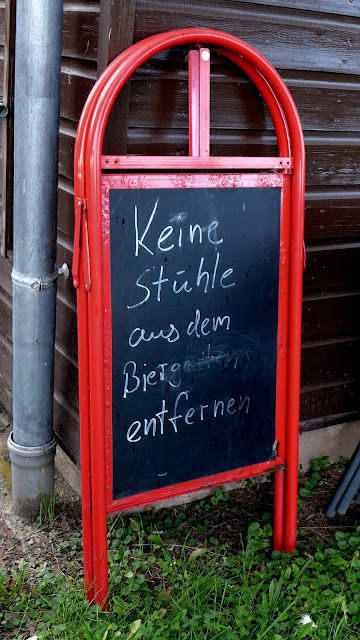 Keine
Stühle
aus dem
Biergarten
entfernen